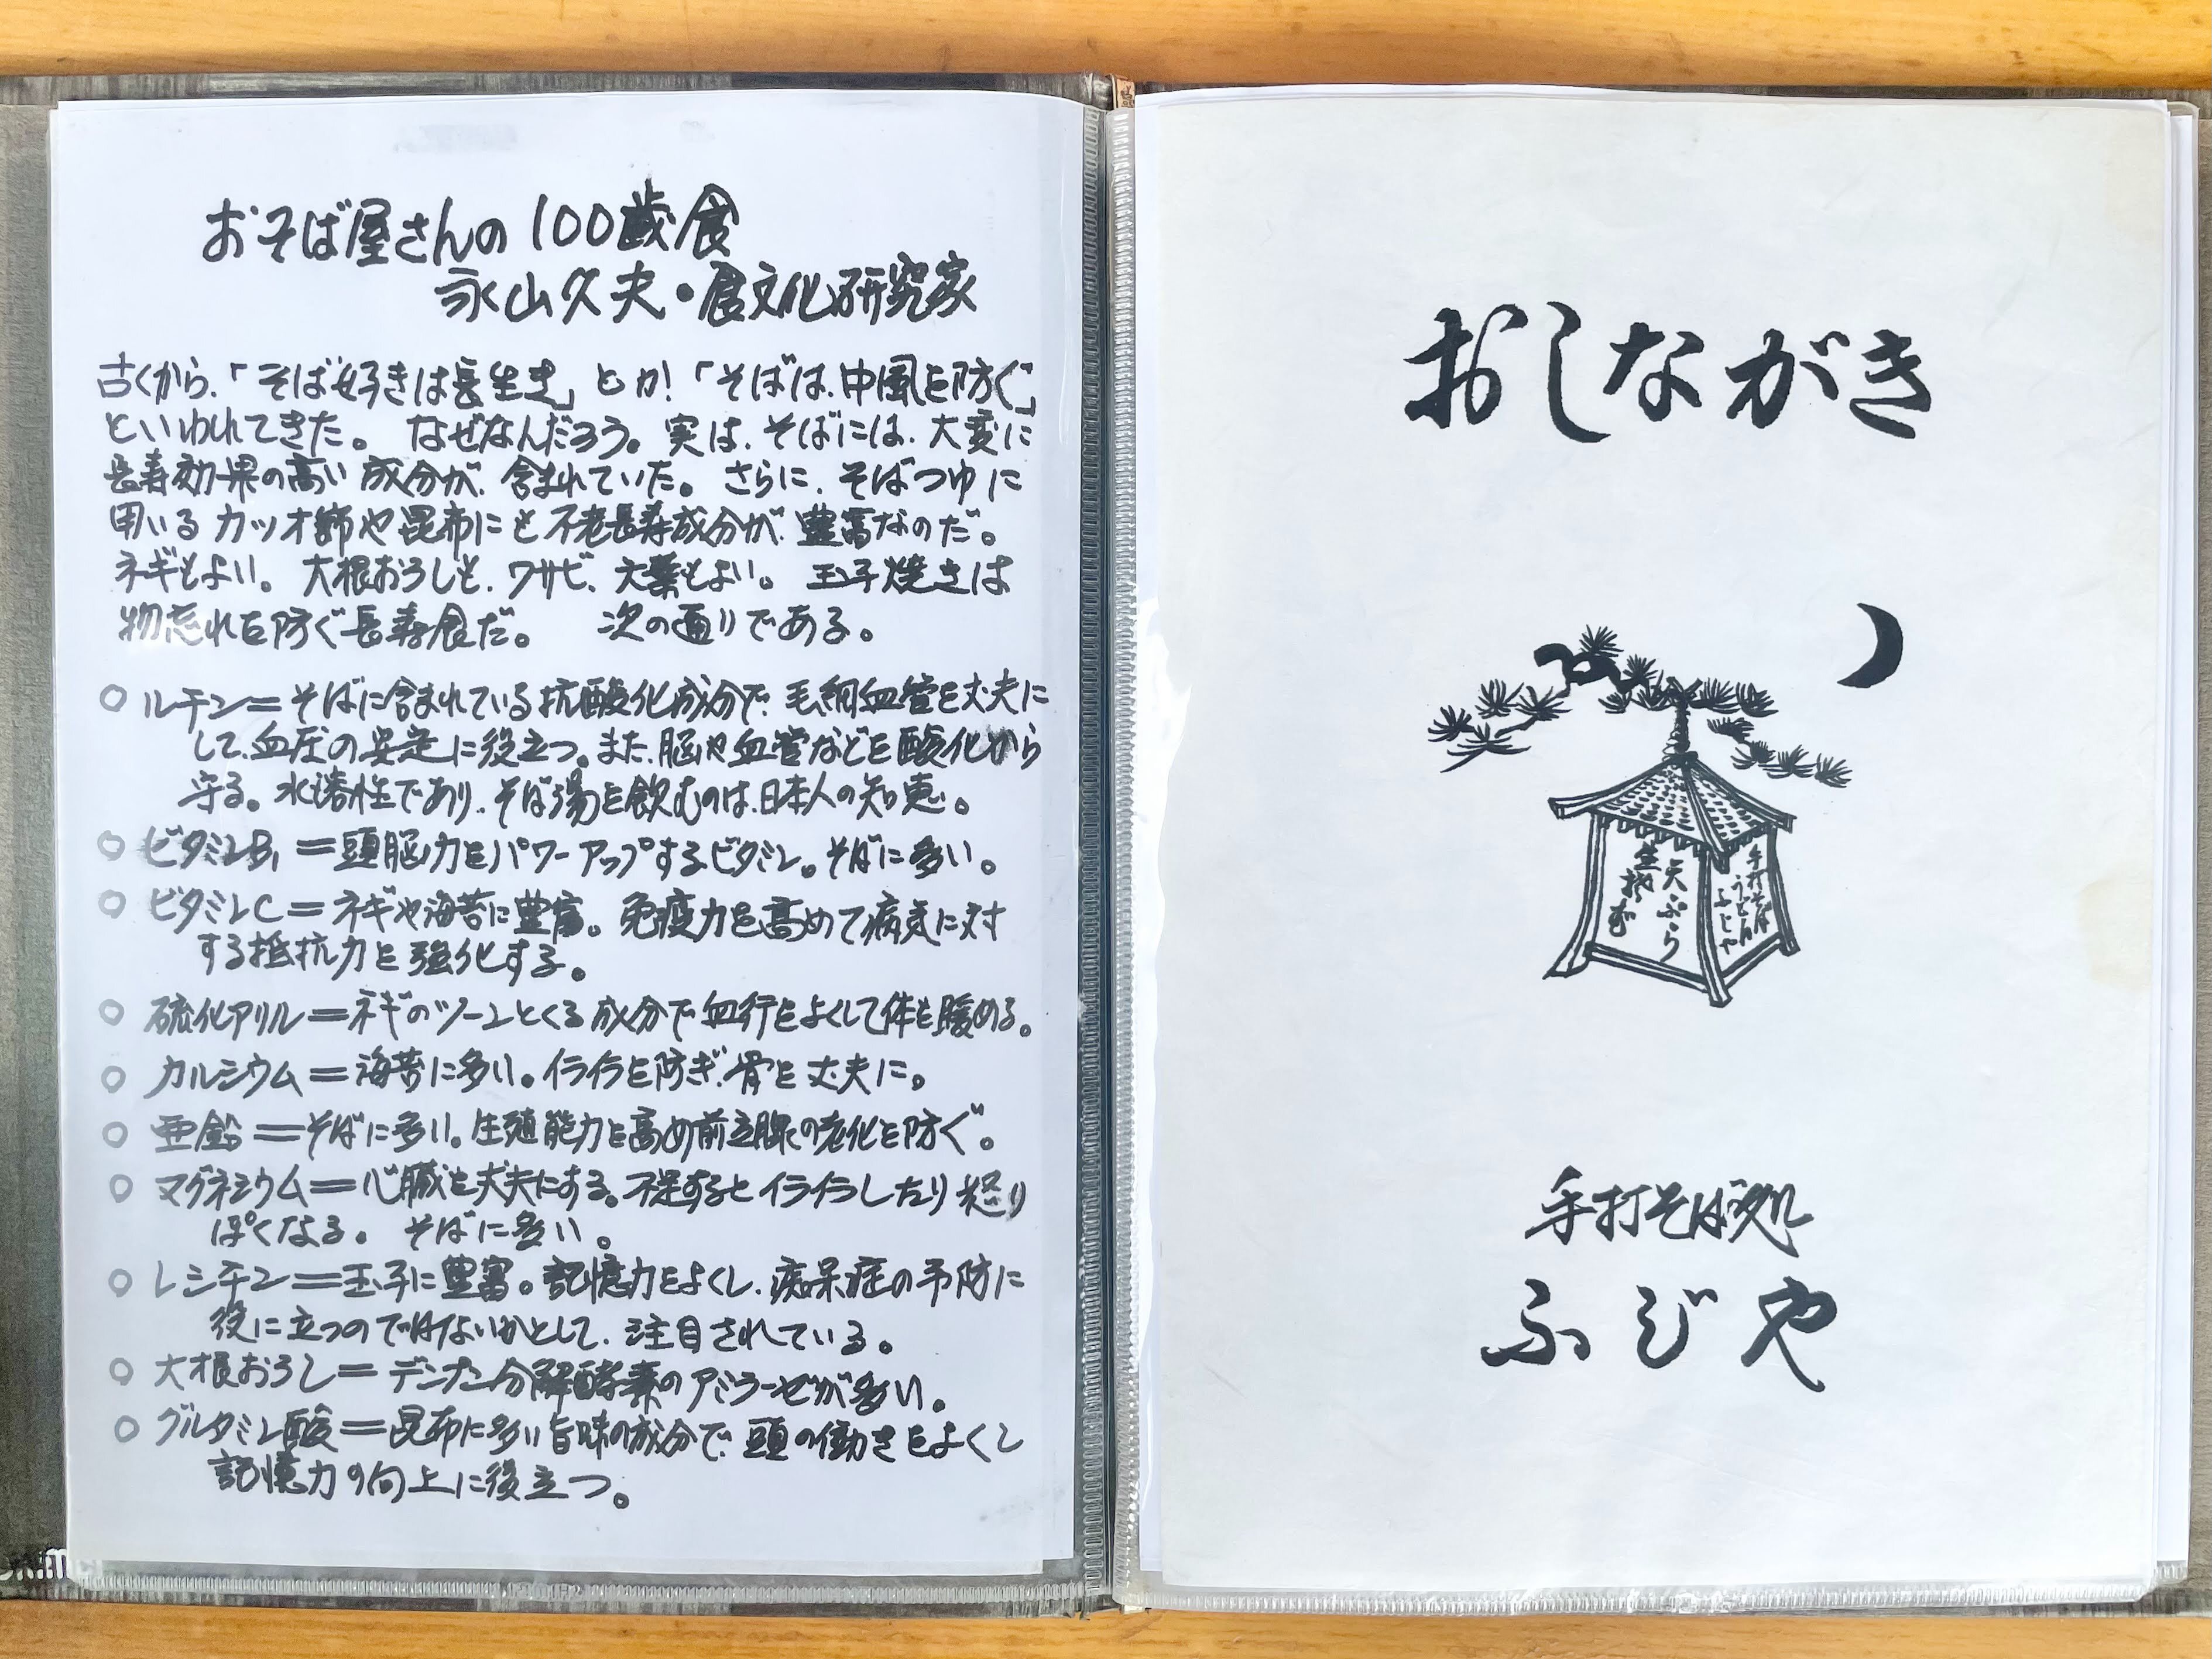 おそば屋さんの100歳食
永山久夫・食文化研究家
古くから、「そば好きは長生き」とか！「そばは、中風を防ぐ」
といわれてきた。 なぜなんだろう。実は、そばには、大変に
長寿効果の高い成分が、含まれていた。 さらに、そばつゆに
用いるカツオ節や昆布にも不老長寿成分が、豊富なのだ。
ネギもよい。 大根おろしも、ワサビ、大葉もよい。 玉子焼きは
物忘れを防ぐ長寿食だ。 次の通りである。
○ ルチン＝そばに含まれている抗酸化成分で、毛細血管を丈夫に
して、血圧の安定に役立つ。また、脳や血管などを酸化から
守る。水溶性であり、そば湯を飲むのは、日本人の知恵。
○ ビタミンB₁＝頭脳力をパワーアップするビタミン。そばに多い。
○ ビタミンC＝ネギや海苔に豊富。免疫力を高めて病気に対
する抵抗力を強化する。
○ 硫化アリル＝ネギのツーンとくる成分で血行をよくして体を暖める。
○ カルシウム＝海苔に多い。イライラを防ぎ、骨を丈夫に。
○ 亜鉛＝そばに多い。生殖能力を高め前立腺の老化を防ぐ。
○ マグネシウム＝心臓を丈夫にする。不足するとイライラしたり怒り
ぽくなる。 そばに多い。
○ レシチン＝玉子に豊富。記憶力をよくし、痴呆症の予防に
役に立つのではないかとして、注目されている。
○ 大根おろし＝デンプン分解酵素のアミラーゼが多い。
○ グルタミン酸＝昆布に多い旨味の成分で、頭の働きをよくし
記憶力の向上に役立つ。
おしながき
手打そば
うどん
ふじや
天ぷら
生そば
手打そば処
ふじや